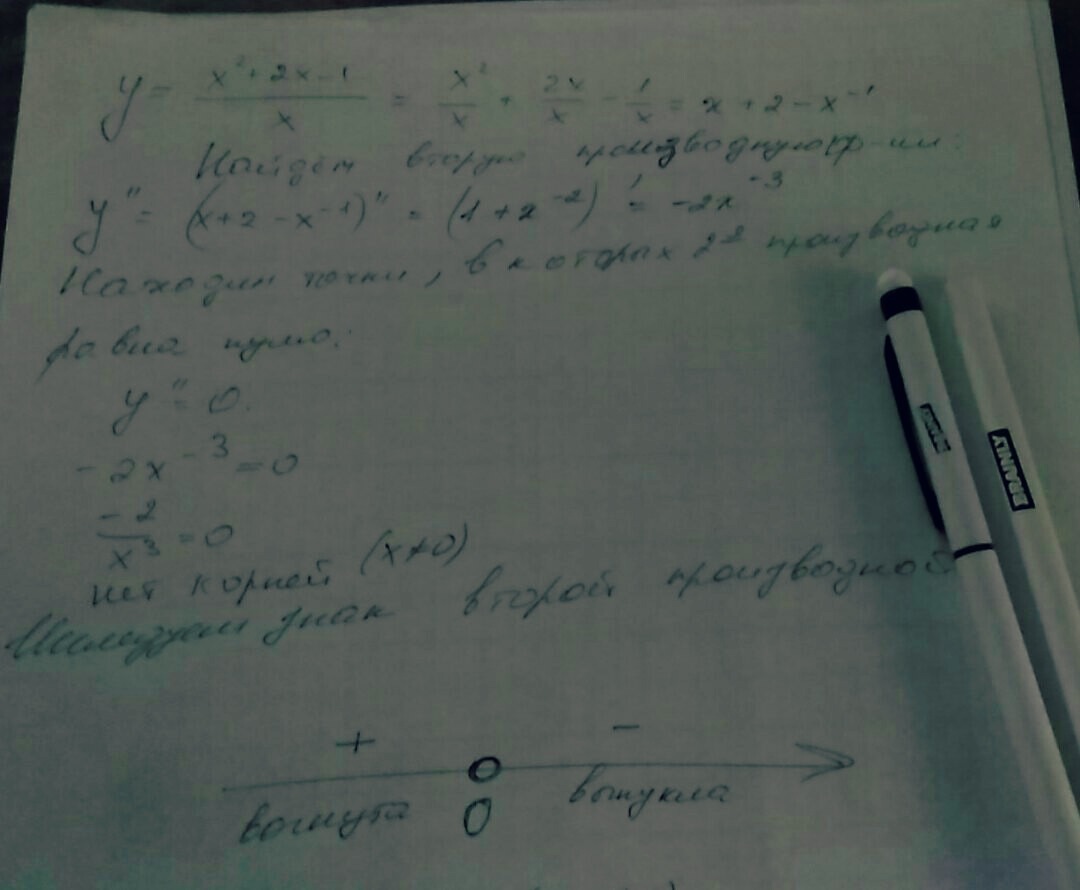 y = \frac{x^2+2x-1}{x} = \frac{x^2}{x} + \frac{2x}{x} - \frac{1}{x} = x + 2 - x^{-1}
Найдём вторую производную ф-ии:
y'' = (x+2-x^{-1})'' = (1+x^{-2})' = -2x^{-3}
Находим точки, в которых 2ª производная
равна нулю:
y'' = 0.
-2x^{-3} = 0
\frac{-2}{x^3} = 0
нет корней (x≠0)
знак второй производной
+ -
вогнута 0 выпукла
BRAINLY